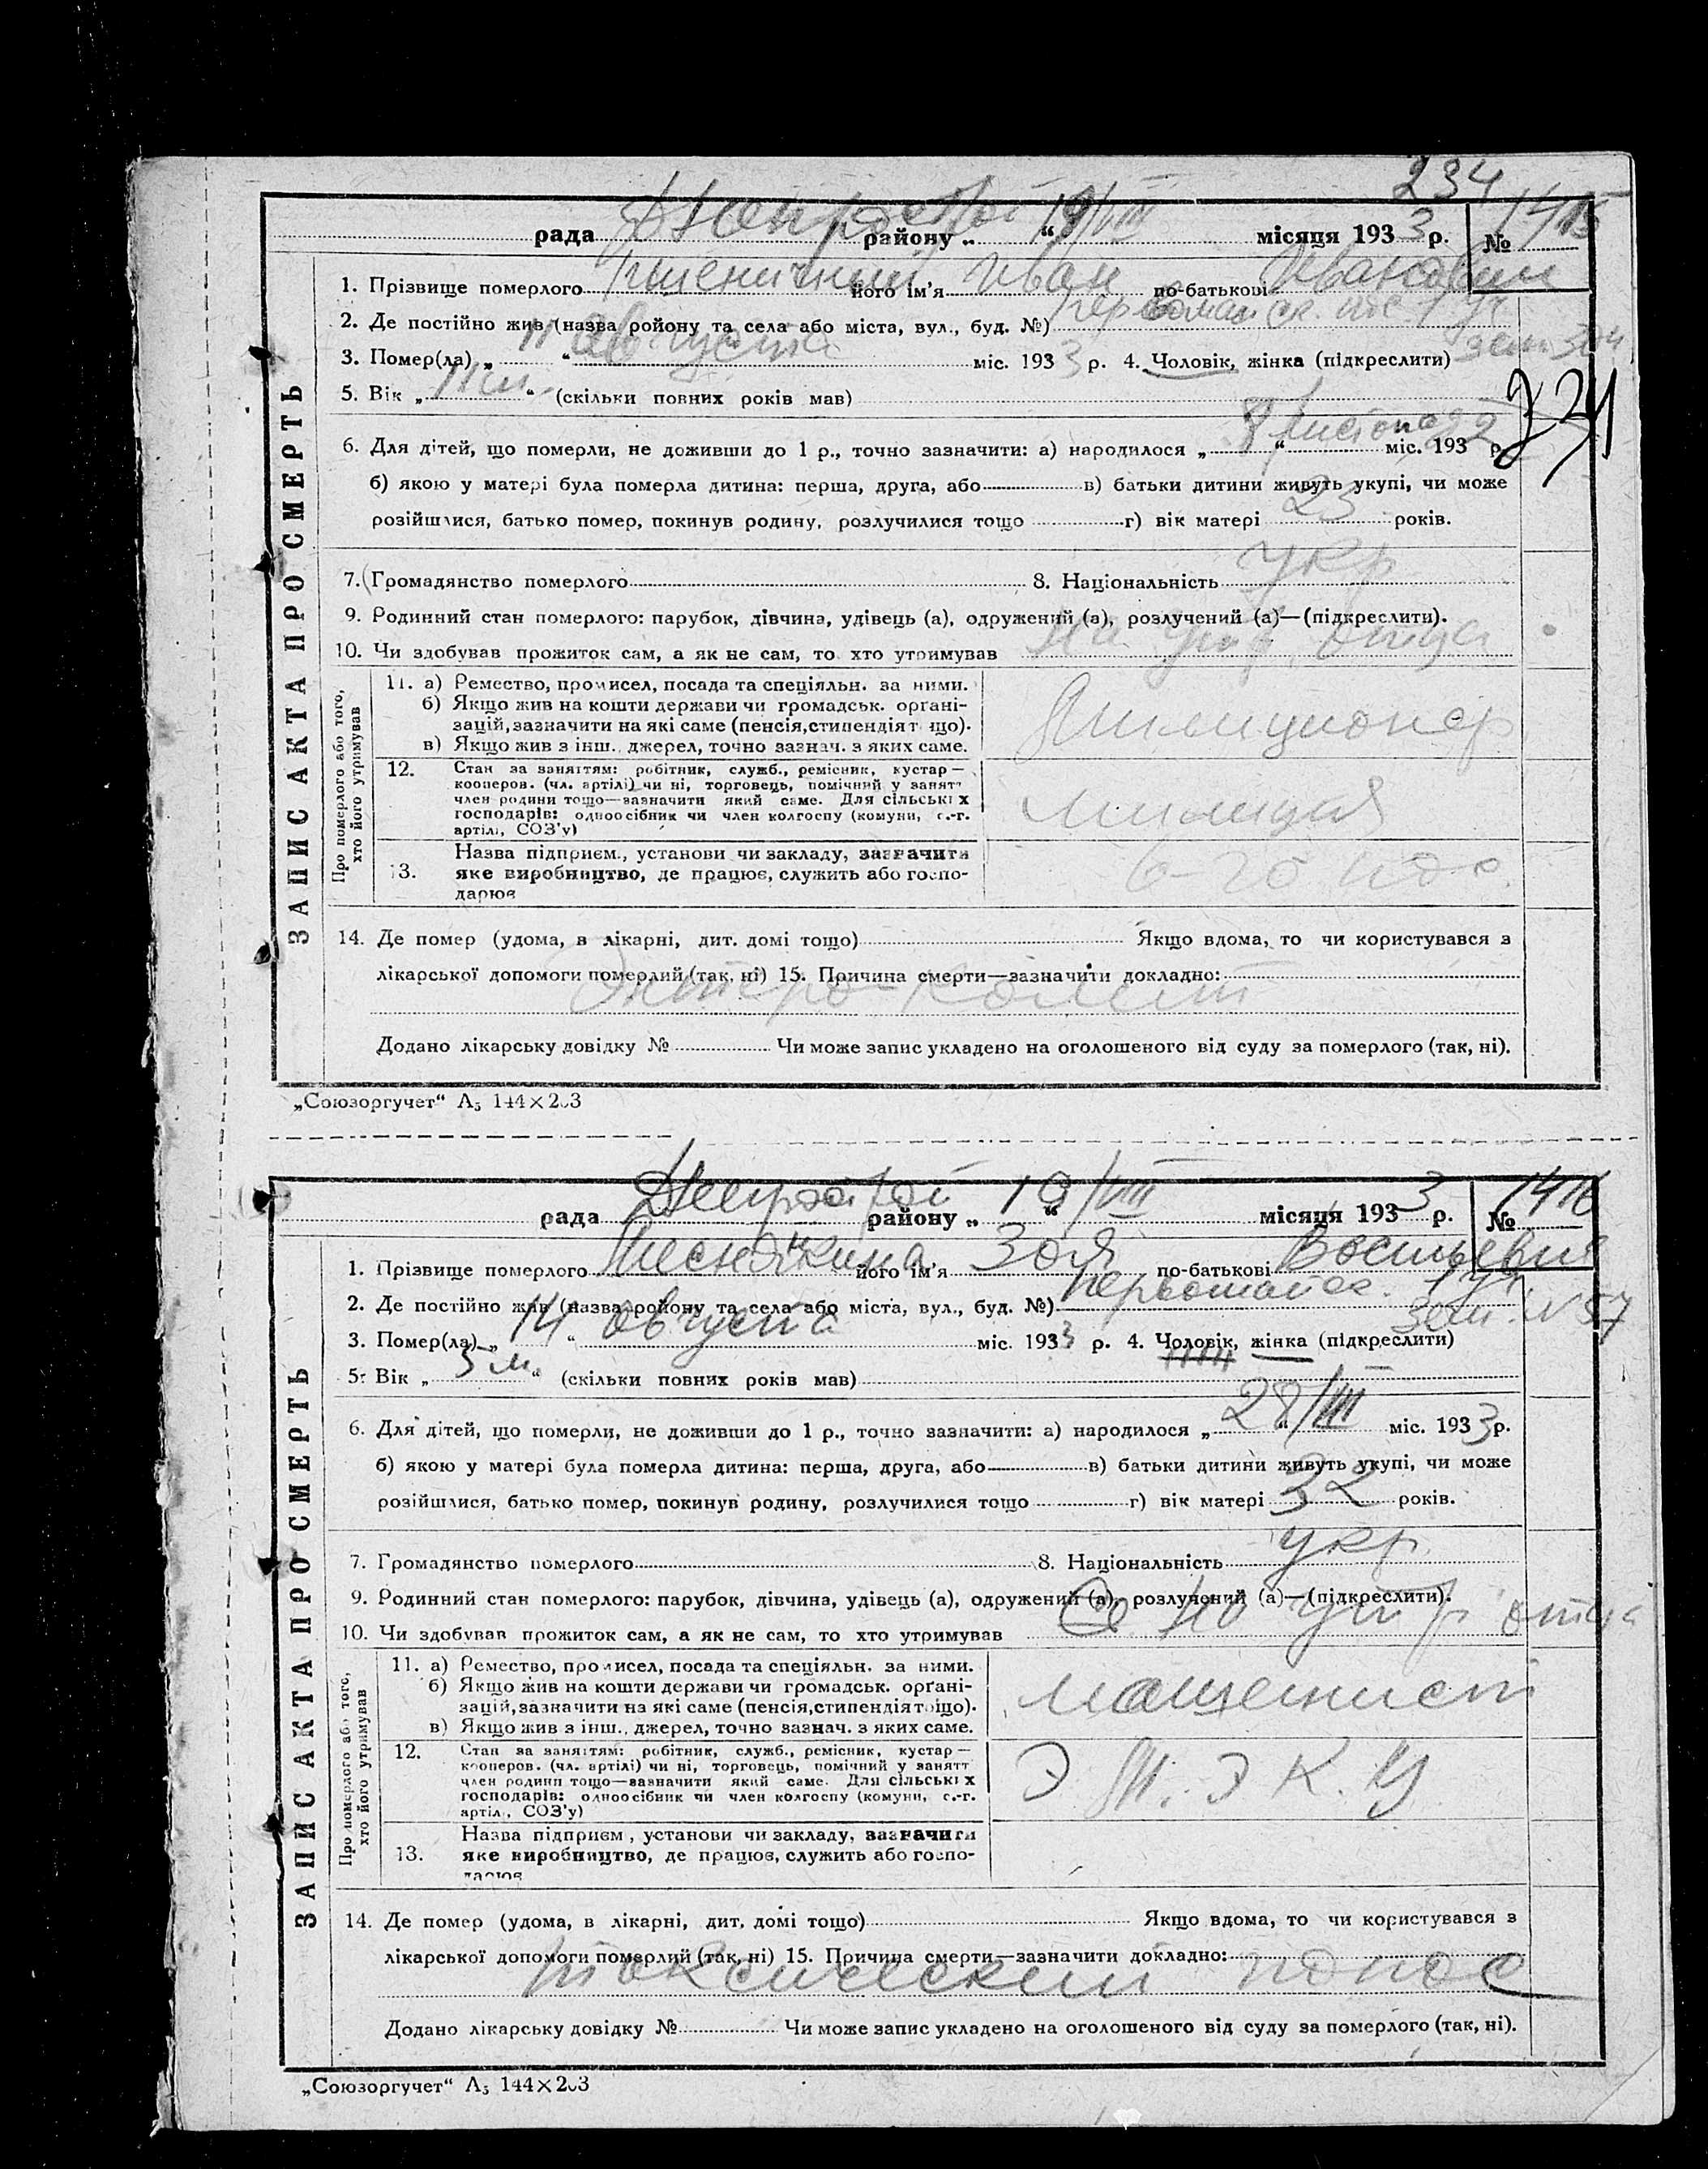 234
Днепрострой 19/VIII
рада районy „ “ місяця 1933 р. № 1415
1. Прізвище померлого Пшеничний його ім'я Иван по-батькові Иванович
2. Де постійно жив (назва району та села або міста, вул., буд. №) Первомайск. пос 1 уч
3. Помер(ла) „ 11 “ августа міс. 1933 р. 4. Чоловік, жінка (підкреслити)
5. Вік „ 11 м. “ (скільки повних років мав)
234
6. Для дітей, що померли, не доживши до 1 р., точно зазначити: а) народилося „ 8 “ Листопад міс. 1932 р.
б) якою у матері була померла дитина: перша, друга, або в) батьки дитини живуть укупі, чи може
розійшлися, батько помер, покинув родину, розлучилися тощо г) вік матері 23 років.
7. Громадянство померлого 8. Національність укр
9. Родинний стан померлого: парубок, дівчина, удівець (а), одружений (а), розлучений (а)—(підкреслити).
10. Чи здобував прожиток сам, а як не сам, то хто утримував На ижд. отца
ЗАПИС АКТА ПРО СМЕРТЬ
Про померлого або того, хто його утримував
11. а) Ремество, промисел, посада та спеціяльн. за ними.
б) Якщо жив на кошти держави чи громадськ. орґані-
зацій, зазначити на які саме (пенсія, стипендія тощо).
в) Якщо жив з інш. джерел, точно зазнач. з яких саме.
Милиционер
12. Стан за заняттям: робітник, служб., ремісник, кустар—
кооперов. (чл. артілі) чи ні, торговець, помічний у занятт
член родини тощо—зазначити який саме. Для сільських
господарів: одноосібник чи член колгоспу (комуни, с.-г.
артілі, СОЗ'у)
милиция
13. Назва підприєм., установи чи закладу, зазначити
яке виробництво, де працює, служить або госпо-
дарює
6-го
14. Де помер (удома, в лікарні, дит. домі тощо) Якщо вдома, то чи користувався з
лікарської допомоги померлий (так, ні) 15. Причина смерти—зазначити докладно:
Энтеро-колит
Додано лікарську довідку № Чи може запис укладено на оголошеного від суду за померлого (так, ні).
„Союзоргучет“ А5 144×203
Днепрострой 19/VIII
рада району „ “ місяця 1933 р. № 1416
1. Прізвище померлого його ім'я Зоя по-батькові
2. Де постійно жив (назва району та села або міста, вул., буд. №) Первомайск. 1 уч
зем. N 57
3. Помер(ла) „ 14 “ августа міс. 1933 р. 4. Чоловік, жінка (підкреслити)
5. Вік „ 5 м. “ (скільки повних років мав)
6. Для дітей, що померли, не доживши до 1 р., точно зазначити: а) народилося „ 28/III “ міс. 1933 р.
б) якою у матері була померла дитина: перша, друга, або в) батьки дитини живуть укупі, чи може
розійшлися, батько помер, покинув родину, розлучилися тощо г) вік матері 32 років.
7. Громадянство померлого 8. Національність укр
9. Родинний стан померлого: парубок, дівчина, удівець (а), одружений (а), розлучений (а)—(підкреслити).
10. Чи здобував прожиток сам, а як не сам, то хто утримував отца
ЗАПИС АКТА ПРО СМЕРТЬ
Про померлого або того, хто його утримував
11. а) Ремество, промисел, посада та спеціяльн. за ними.
б) Якщо жив на кошти держави чи громадськ. орґані-
зацій, зазначити на які саме (пенсія, стипендія тощо).
в) Якщо жив з інш. джерел, точно зазнач. з яких саме.
машенист
12. Стан за заняттям: робітник, служб., ремісник, кустар—
кооперов. (чл. артілі) чи ні, торговець, помічний у занятт
член родини тощо—зазначити який саме. Для сільських
господарів: одноосібник чи член колгоспу (комуни, с.-г.
артілі, СОЗ'у)
13. Назва підприєм., установи чи закладу, зазначити
яке виробництво, де працює, служить або госпо-
дарює
14. Де помер (удома, в лікарні, дит. домі тощо) Якщо вдома, то чи користувався з
лікарської допомоги померлий (так, ні) 15. Причина смерти—зазначити докладно:
токсический понос
Додано лікарську довідку № Чи може запис укладено на оголошеного від суду за померлого (так, ні).
„Союзоргучет“ А5 144×203